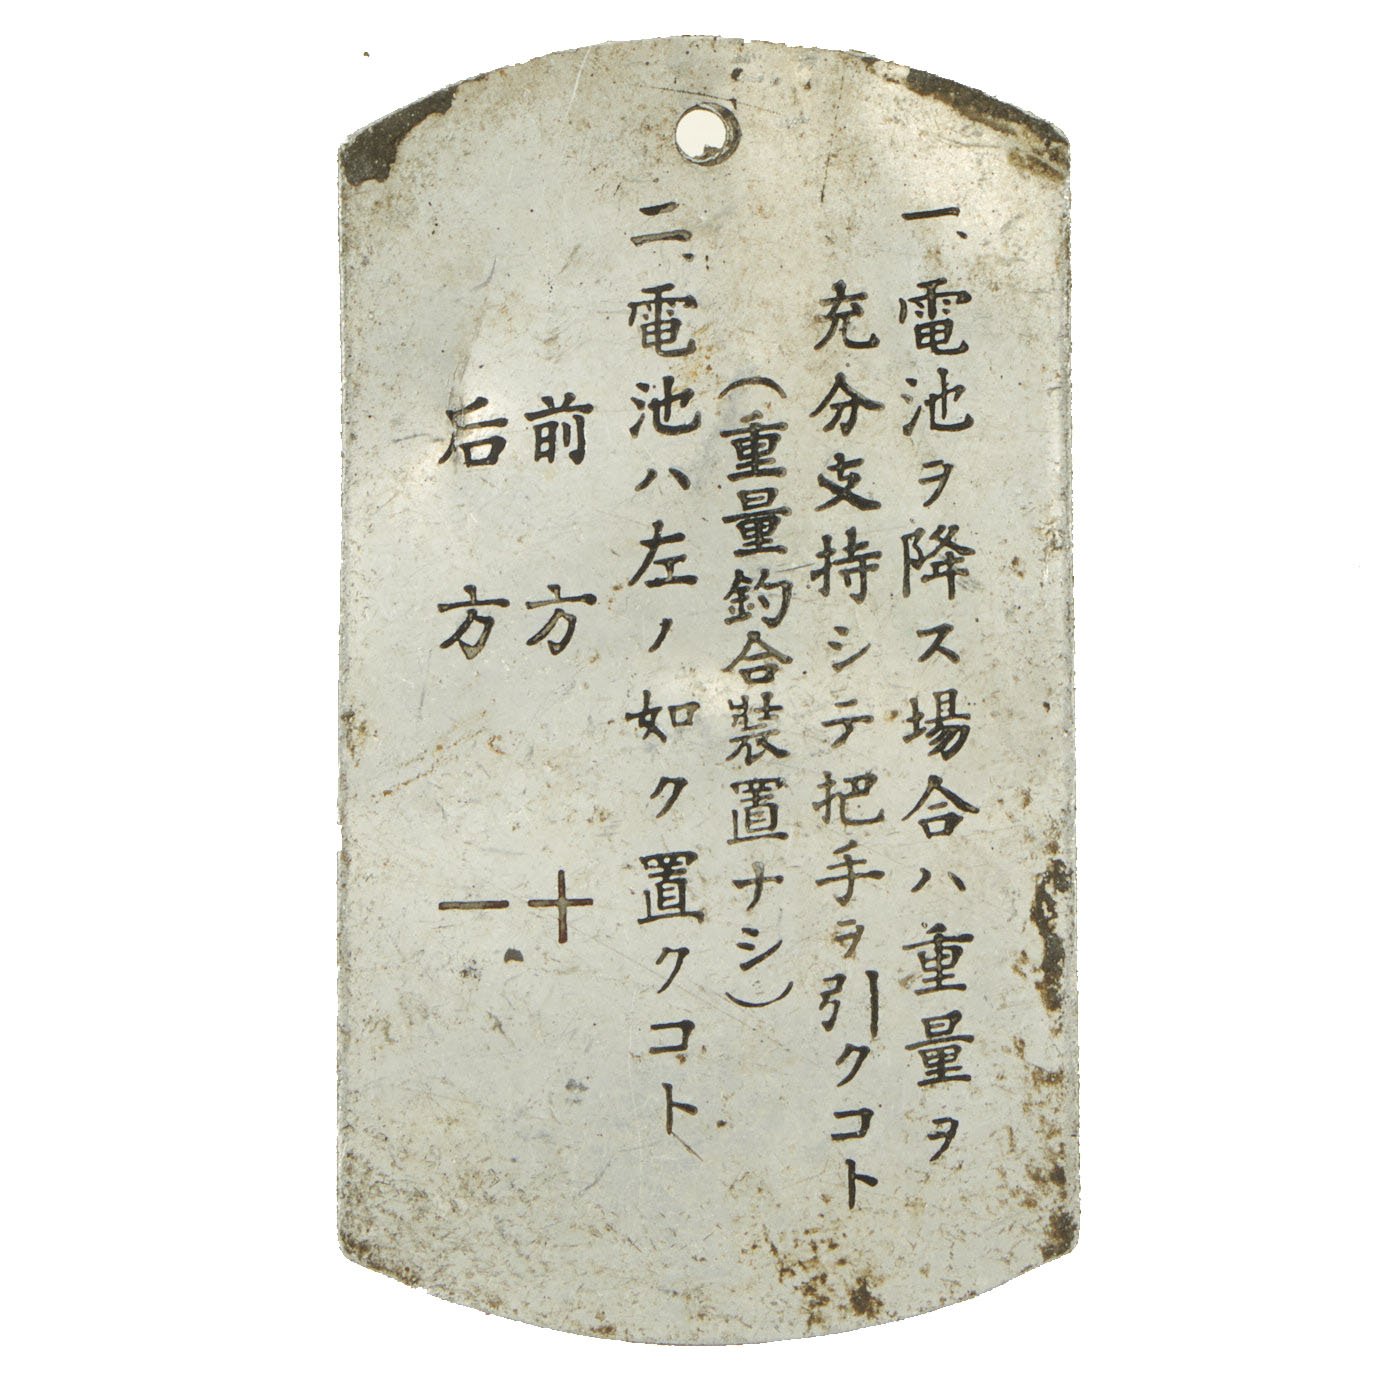 一、電池ヲ降ス場合ハ重量ヲ
充分支持シテ把手ヲ引クコト
（重量釣合装置ナシ）
二、電池ハ左ノ如ク置クコト
前方　＋
后方　－